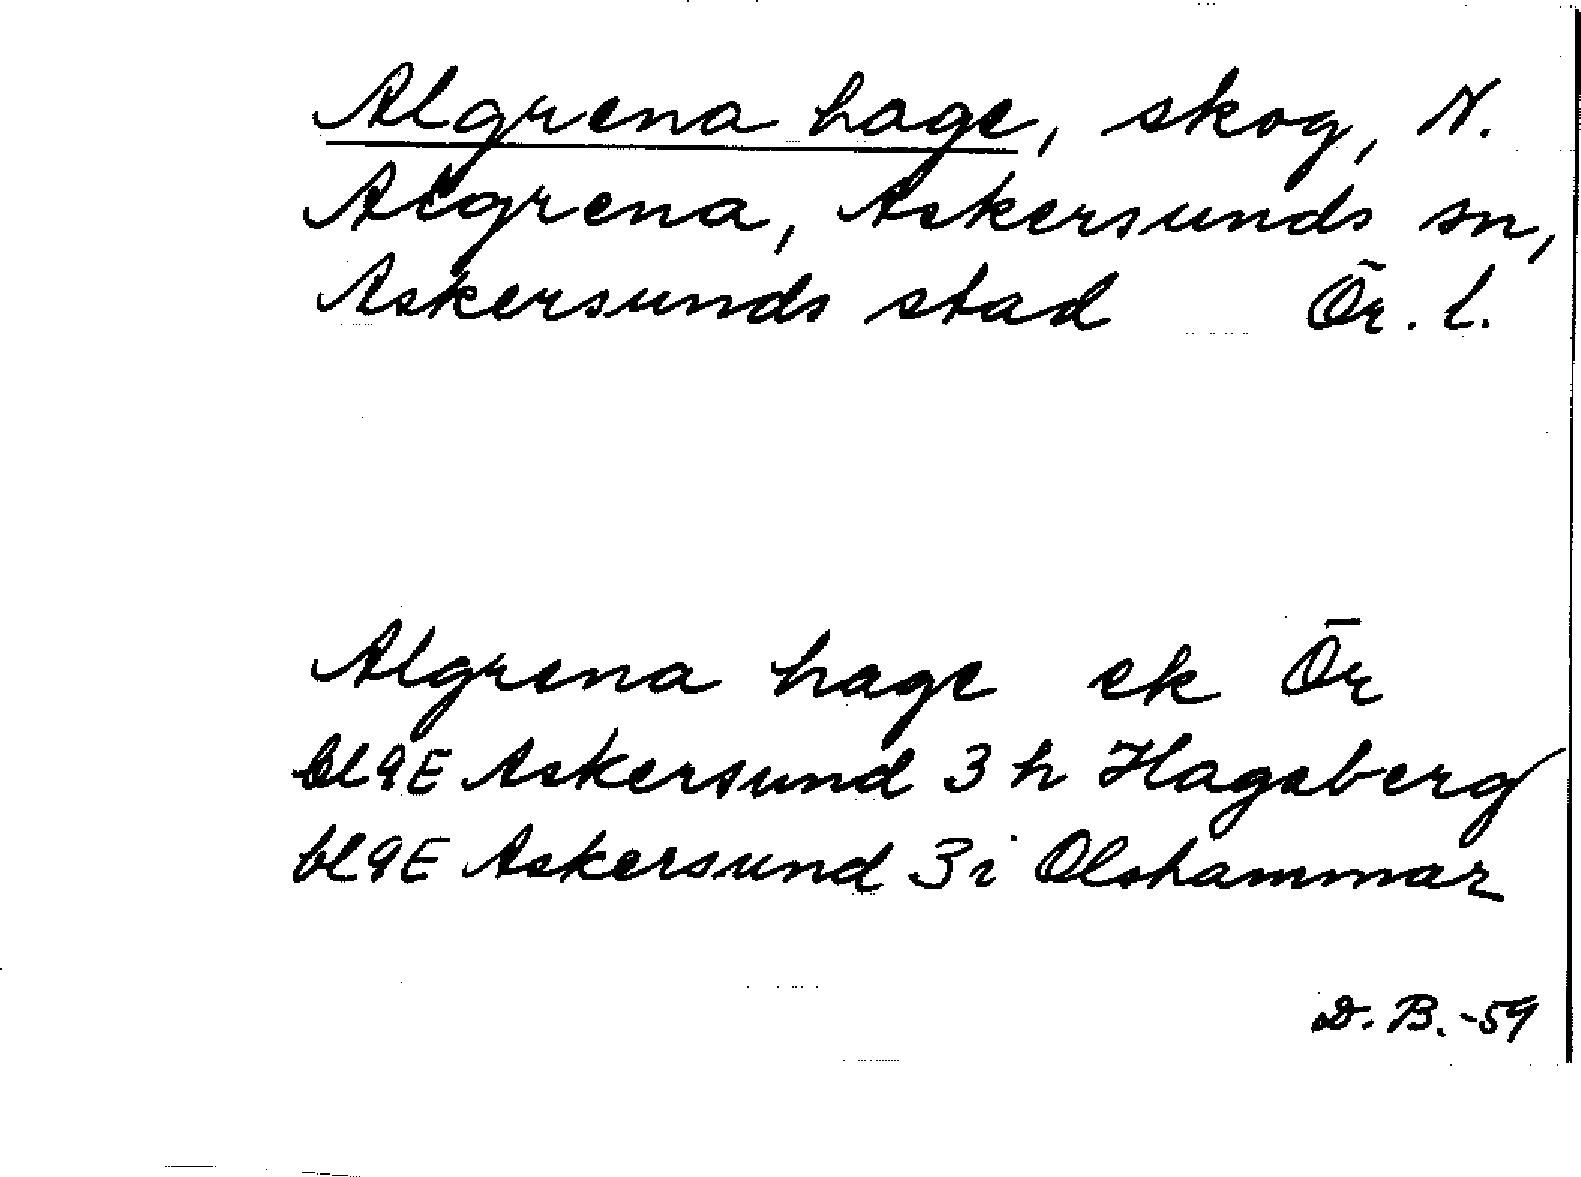 Algrena hage, skog, N.
Algrena, Askersunds sn,
Askersunds stad Ör. l.
Algrena hage ek Ör
bl 9E Askersund 3 h Hagaberg
bl 9E Askersund 3 i Olshammar
D. B. -59